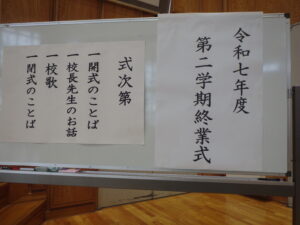 令和七年度
第二学期終業式
式次第
一開式のことば
一校長先生のお話
一校歌
一閉式のことば